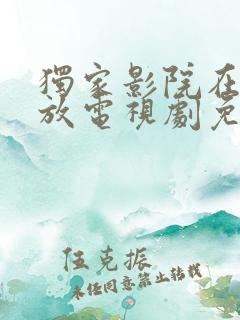 獨家影院在
放電視劇免
伍克振
未经同意禁止转载